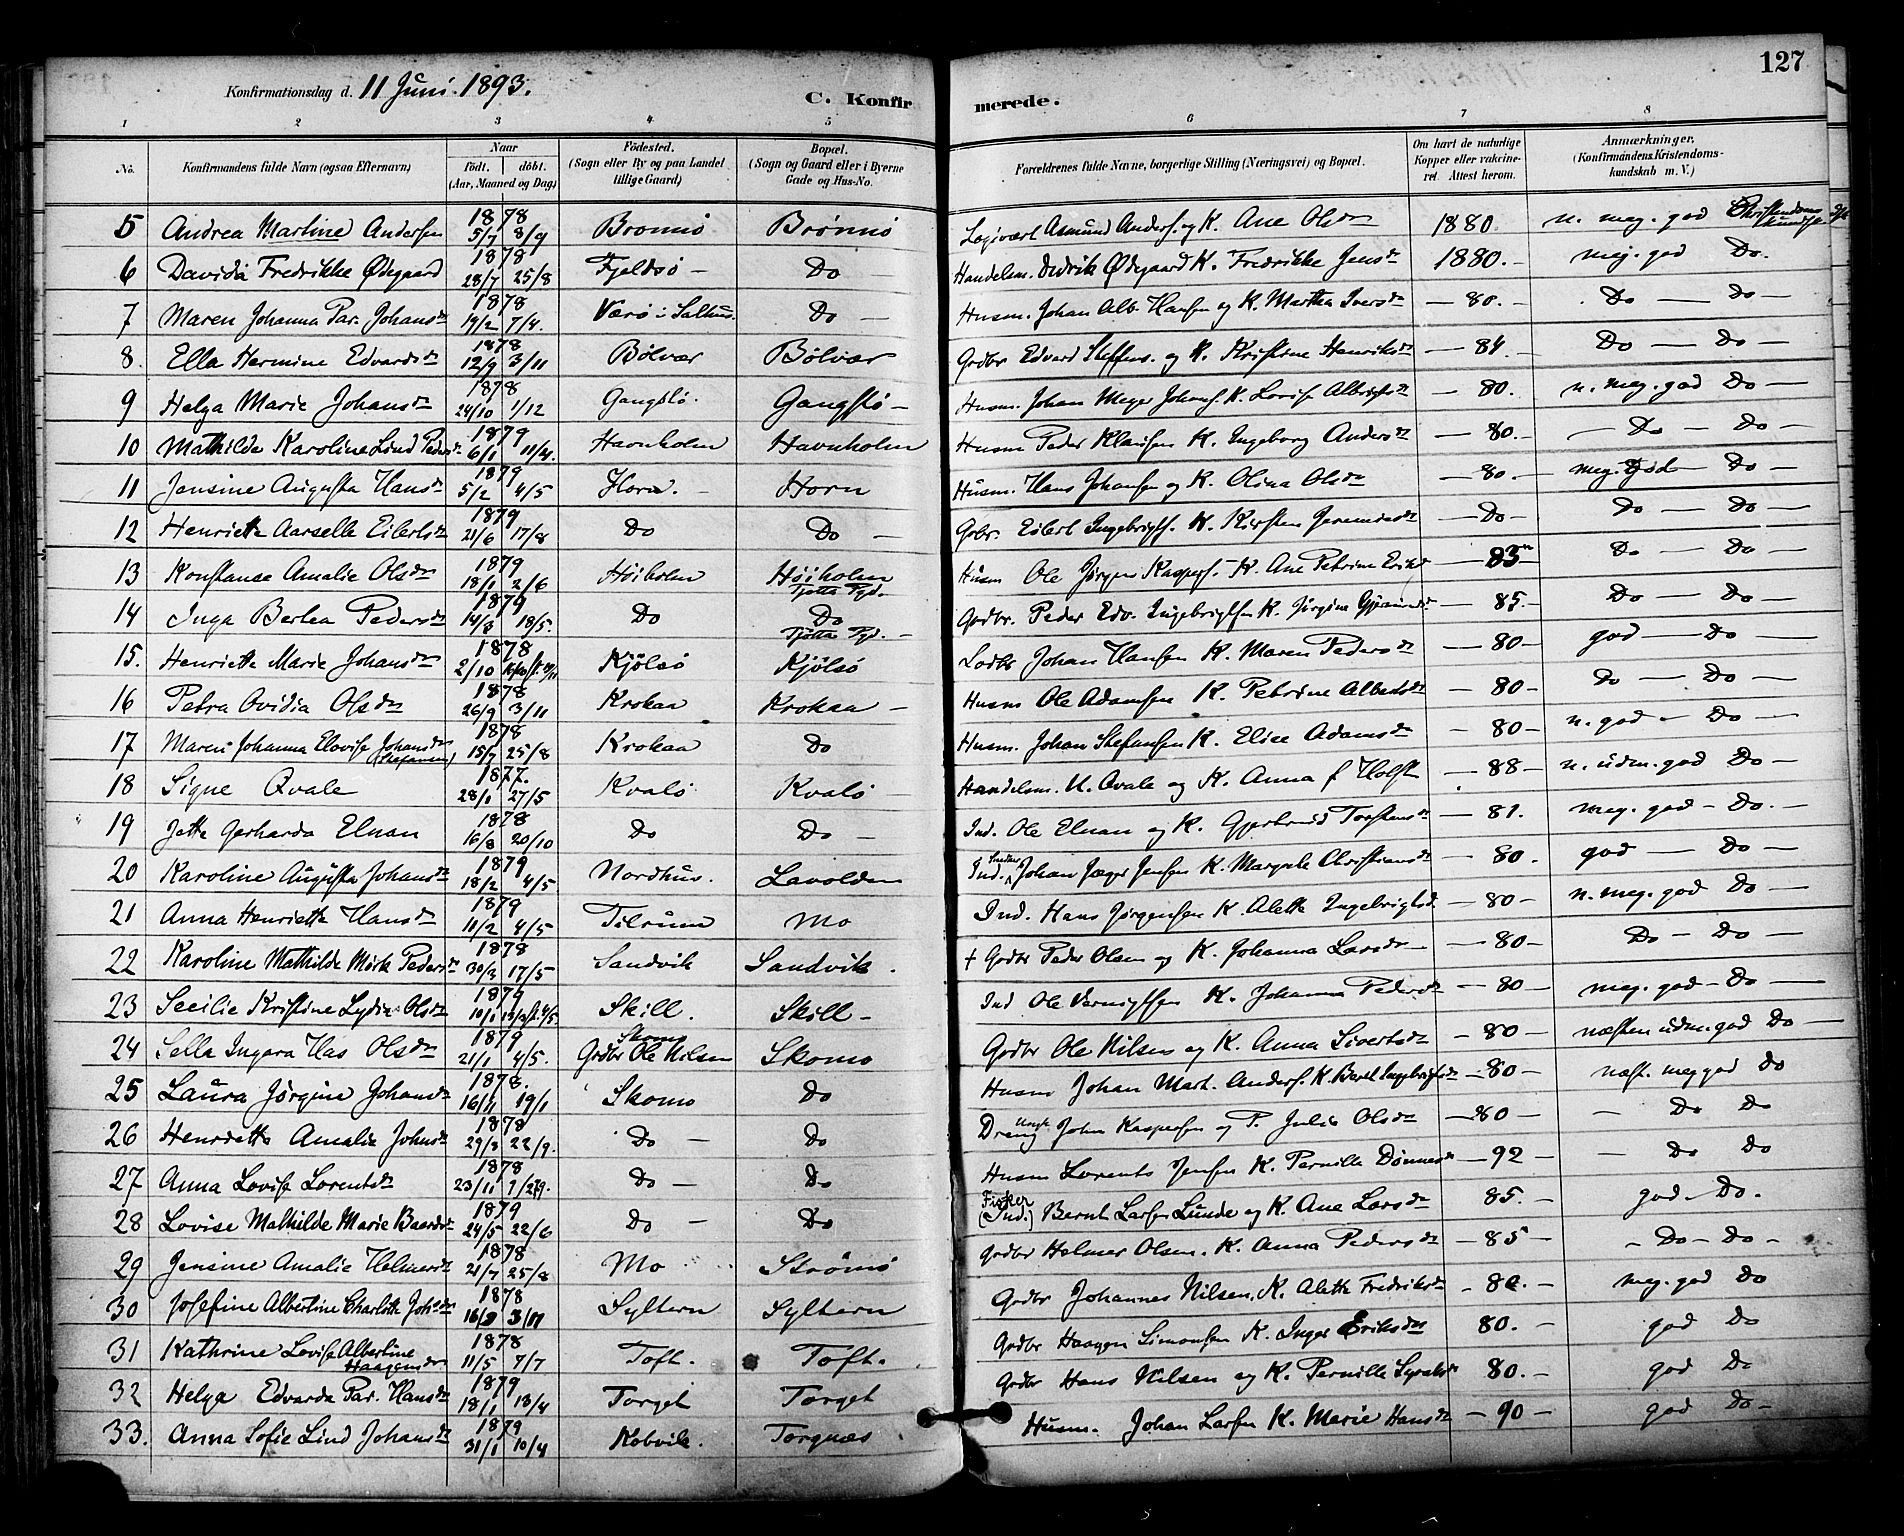 127
Konfirmationsdag d. 11 Juni 1893.
C. Konfir merede.
1 2 3 4 5 6 7 8
No. Konfirmandens fulde Navn (ogsaa Efternavn) Naar Født. døbt. (Aar, Maaned og Dag) Fødested. (Sogn eller By og paa Landet tillige Gaard) Bopæl. (Sogn og Gaard eller i Byerne Gade og Hus-No. Forældrenes fulde Navne, borgerlige Stilling (Næringsvei) og Bopæl. Om havt de naturlige Kopper eller vakcineret. Attest herom. Anmærkninger. (Konfirmandens Kristendomskundskab m. V.)
5 Andrea Martine Andersen 1878 5/7 8/9 Brønnø Brønnø Logivært Asmund Anders. og K. Ane Olsdr 1880. n. meg. god Christendoms kundsk.
6 Davida Fredrikke Ødegaard 1878 28/7 25/8 Fjeldsø - Do Handelsm. Didrik Ødegaard K. Fredrikke Jensdr 1880.- meg. god Do.
7 Maren Johanna Par. Johansdr 1878 19/2 7/4. Værø i Salhus. Do - Husm. Johan Alb. Hansen og K. Martha Iversdr - 80. - Do - Do -
8. Ella Hermine Edvardsdr 1878 12/9 3/11 Bølvær Bølvær Grdbr Edvard Steffens. og K. Kristine Henriksdr - 84. - Do - Do -
9 Helga Marie Johansdr 1878 24/10 1/12 Gangslø. Gangslø - Husm. Johan Meyer Johans. K. Lovise Albrigtsdr - 80. n. meg. god Do -
10 Mathilde Karoline Lind Pedersdr 1879 6/1 11/4. Havnholm Havnholm Husm Peder Klausen K. Ingeborg Andersdr - 80. - - Do - Do -
11 Jensine Augusta Hansdr 1879 5/2 4/5 Horn. - Horn Husm. Hans Johansen og K. Olina Olsdr - 80. - meg. god - Do -
12 Henriette Aarselle Eilertsdr 1879 21/6 17/8 Do Do - Gbr. Eilert Ingebrigts. K. Kirsten Jeremiasdr - Do - Do - Do -
13 Konstanse Amalie Olsdr 1879 18/1 2/6 Høiholm Høiholm Tjøtta Pgd. Husm Ole Jørgen Kaspers. K. Ane Petrine Eriksd - 83 Do - Do -
14 Inga Berlea Pedersdr 1879 14/3 18/5. Do Do Tjøtta Pgd. - Grdbr. Peder Edv. Ingebrigtsen K. Jørgine - 85. - Do - Do -
15. Henriette Marie Johansdr 1878 2/10 Kjølsø Kjølsø Johan Hansen K. Maren Pedersdr - 80 - god - Do -
16 Petra Ovidia Olsdr 1878 26/9 3/11 Krokaa Krokaa - Husm Ole Adamsen K. Petrine Albertsdr - 80 - Do - Do -
17 Maren Johanna Elovise Johansdr (Stefansen) 1878 15/7 25/8 Krokaa Do Husm. Johan Stefansen K. Elise Adamsdr - 80 - n. god - Do -
18 Signe Qvale 1877. 28/1 27/5 Kvalø Kvalø Handelsm. U. Qvale og K. Anna f Holst - 88 - n. udm. god Do -
19 Jette Gerharda Elnan 1878 16/8 20/10 Do Do - Ind. Ole Elnan og K. Gjertrud Torstensdr - 81. meg. god - Do. -
20 Karoline Augusta Johansdr 1879 18/2 4/5 Nordhus. Lavolden Ind. Snedker Johan Jæger Jensen K. Margrete Christiansdr - 80. god - Do -
21 Anna Henriette Hansdr 1879 11/2 4/5 Tilrum Mo Ind. Hans Jørgensen K. Alette Ingebrigtsd. - 80 - n. meg. god Do -
22 Karoline Mathilde Mørk Pedersdr 1878 30/3 17/5 Sandvik Sandvik. + Grdbr Peder Olsen og K. Johanna Larsdr - - 80 - Do - Do -
23 Secilie Kristine Lydia Olsdr 1879 10/1 Skill. Skill - Ind Ole K. Johanna Pedersdr - 80 - meg. god - Do -
24 Sella Ingara Has Olsdr 1879 21/1 4/5. Skomo Grdbr Ole Nilsen Skomo Grdbr Ole Nilsen og K. Anna Sivertsdr - 80 - næsten udm. god Do -
25 Laura Jørgine Johansdr 1878. 16/11 19/1 Skomo Do Husm Johan Mart. Anders. K. Beret Ingebrigtsdr - 80 - næst. meg god Do
26 Henriette Amalie Johnsdr 1878 29/8 22/9. Do - Do Ungk Dreng John Kaspersen og P. Julie Olsdr - 80 - - Do Do
27 Anna Lovise Lorentsdr 1878 23/11 Do - Do Husm Lorents Jensen K. Pernille Dønnesdr - 92 - - Do Do
28 Lovise Mathilde Marie Baardsdr 1879 24/5 22/6 Do - Do Fisker (Ind.) Bernt Larsen Lunde og K. Ane Larsdr 85. - god - Do.
29 Jensine Amalie Helmersdr 1878 21/7 25/8 Mo Strømø Grdbr Helmer Olsen. K. Anna Pedersdr - 85 - - Do - Do -
30 Josefine Albertine Charlotte Johsdr 1878 16/9 3/11 Syltern Syltern Grdbr Johannes Nilsen, K. Alette Fredriksdr - 80. - meg. god Do
31 Kathrine Lovise Albertine Haagensdr 1878 11/5 7/7 Toft. Toft. Grdbr Haagen Simonsen K. Inger Eriksdr 80. - god Do
32 Helga Edvarda Par. Hansdr 1879 18/1 13/4 Torget Torget Grdbr Hans Nilsen og K. Pernille 80. - god Do
33. Anna Sofie Lind Johansdr 1879 31/1 10/4 Kobvik. Torgnæs Husm. Johan Larsen K. Marie Hansdr - 90 - god Do -